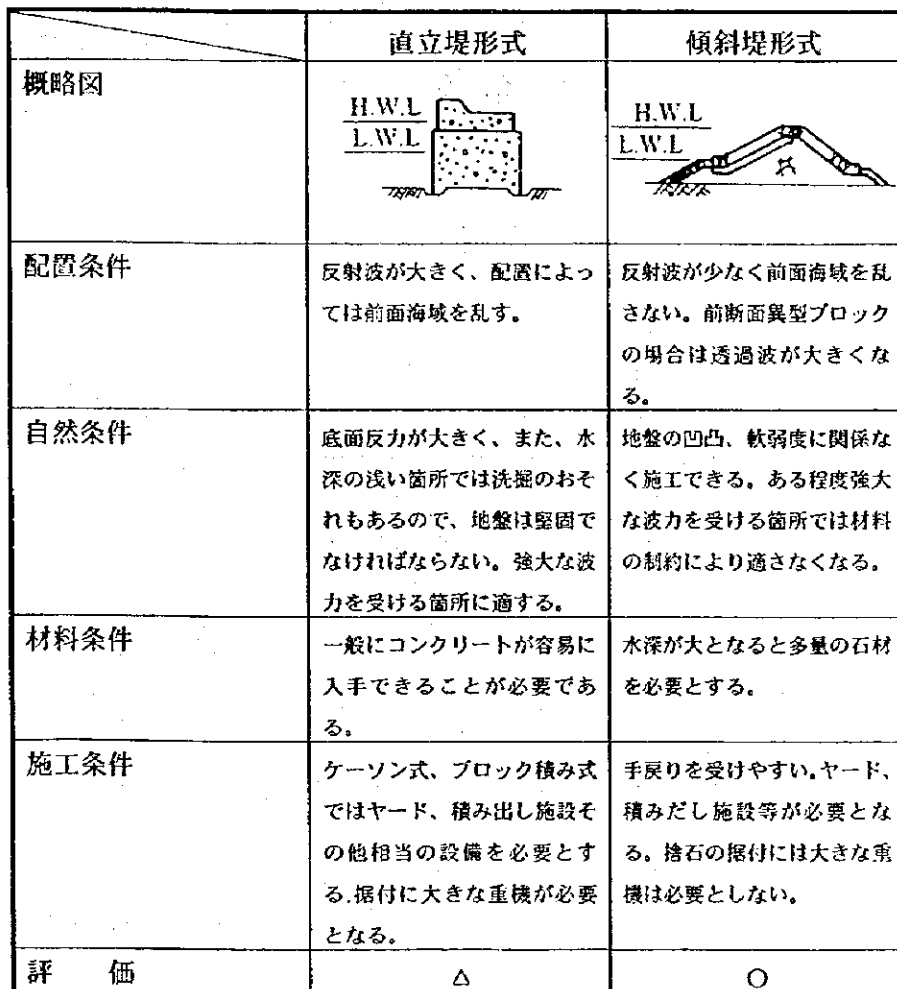 直立堤形式 傾斜堤形式
概略図
H.W.L
L.W.L
H.W.L
L.W.L
配置条件
反射波が大きく、配置によっ
ては前面海域を乱す。
反射波が少なく前面海域を乱
さない。前断面異型ブロック
の場合は透過波が大きくな
る。
自然条件
底面反力が大きく、また、水
深の浅い箇所では洗掘のおそ
れもあるので、地盤は堅固で
なければならない。強大な波
力を受ける箇所に適する。
地盤の凹凸、軟弱度に関係な
く施工できる。ある程度強大
な波力を受ける箇所では材料
の制約により適さなくなる。
材料条件
一般にコンクリートが容易に
入手できることが必要であ
る。
水深が大となると多量の石材
を必要とする。
施工条件
ケーソン式、ブロック積み式
ではヤード、積み出し施設そ
の他相当の設備を必要とす
る.据付に大きな重機が必要
となる。
手戻りを受けやすい。ヤード、
積みだし施設等が必要とな
る。捨石の据付には大きな重
機は必要としない。
評　価 △ ○